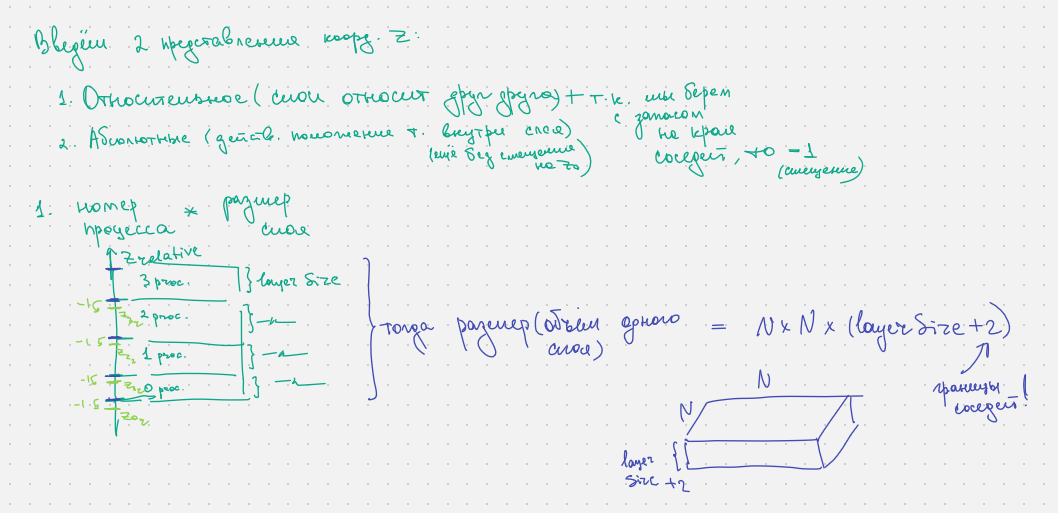 Введём 2 представления коорд. Z:
1. Относительное (слои относит друг друга) + т.к. мы берем
с запасом
на края
соседей, то -1
(смещение)
2. Абсолютные (действ. положение т. внутри слоя)
(ещё без смещения
на Z₀)
1. номер * размер
процесса слоя
Z relative
3 proc. } layer Size
-1S
2 proc.
-1·S
1 proc.
-1S
0 proc.
-1·S
Z₀r
тогда размер (объём одного = N x N x (layer Size + 2)
слоя)
границы
соседей!
N
N
layer
Size +2